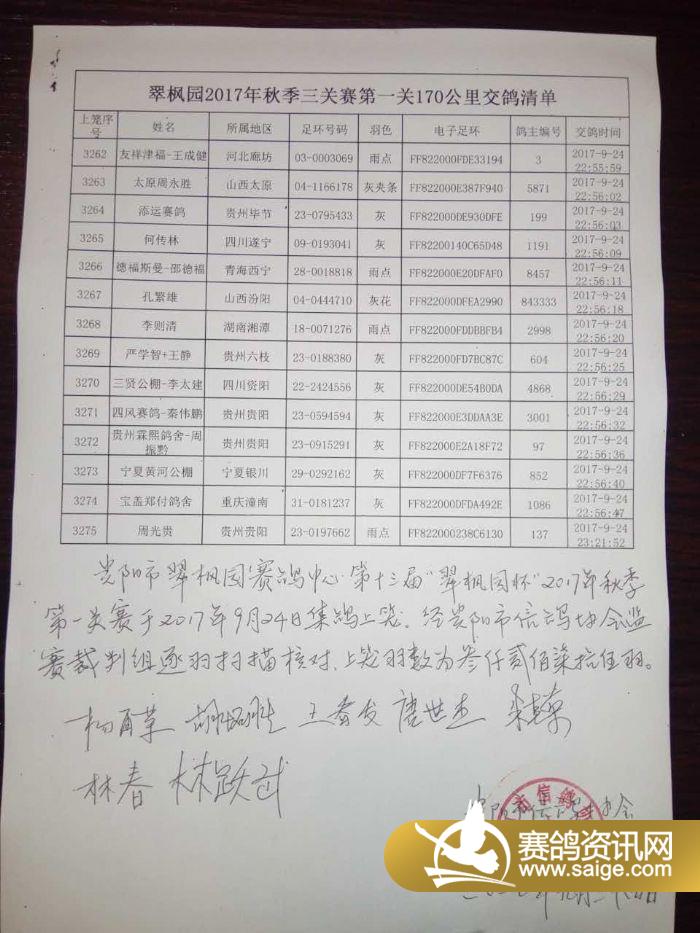 翠枫园2017年秋季三关赛第一关170公里交鸽清单
上笼序号 姓名 所属地区 足环号码 羽色 电子足环 鸽主编号 交鸽时间
3262 友祥津福-王成健 河北廊坊 03-0003069 雨点 FF822000FDE33194 3 2017-9-24 22:55:59
3263 太原周永胜 山西太原 04-1166178 灰夹条 FF822000E387F940 5871 2017-9-24 22:56:02
3264 添运赛鸽 贵州毕节 23-0795433 灰 FF822000DE930DFE 199 2017-9-24 22:56:03
3265 何传林 四川遂宁 09-0193041 灰 FF82200140C65D48 1191 2017-9-24 22:56:09
3266 德福斯曼-邵德福 青海西宁 28-0018818 雨点 FF822000E20DFAF0 8457 2017-9-24 22:56:11
3267 孔繁雄 山西汾阳 04-0444710 灰花 FF822000DFEA2990 843333 2017-9-24 22:56:18
3268 李则清 湖南湘潭 18-0071276 雨点 FF822000FDDBBFB4 2998 2017-9-24 22:56:20
3269 严学智+王静 贵州六枝 23-0188380 灰 FF822000FD7BC87C 604 2017-9-24 22:56:25
3270 三贤公棚-李太建 四川资阳 22-2424556 灰 FF822000DE54B0DA 4868 2017-9-24 22:56:29
3271 四风赛鸽-秦伟鹏 贵州贵阳 23-0594594 灰 FF822000E3DDAA3E 3001 2017-9-24 22:56:32
3272 贵州霖熙鸽舍-周振黔 贵州贵阳 23-0915291 灰 FF822000E2A18F72 97 2017-9-24 22:56:36
3273 宁夏黄河公棚 宁夏银川 29-0292162 灰 FF822000DF7F6376 852 2017-9-24 22:56:40
3274 宝盖郑付鸽舍 重庆潼南 31-0181237 灰 FF822000DFDA492E 1086 2017-9-24 22:56:47
3275 周光贵 贵州贵阳 23-0197662 雨点 FF822000238C6130 137 2017-9-24 23:21:52
贵阳市翠枫园赛鸽中心第十三届"翠枫园杯"2017年秋季
第一关赛于2017年9月24日集鸽上笼。经贵阳市信鸽协会监
赛裁判组逐羽扫描核对，上笼羽数为叁仟贰佰柒拾伍羽。
王春发 唐世杰
林春 林跃武
市信鸽
赛鸽资讯网
www.saige.com